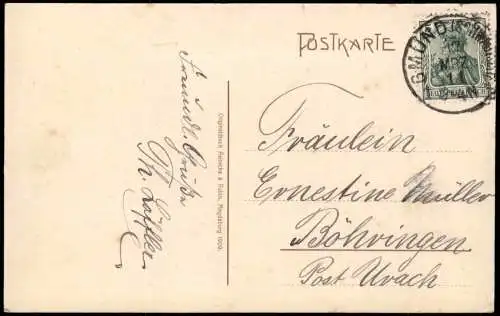 Freundl. Grüße
Th. Löffler
Originaldruck Reincke & Rubin, Magdeburg 1909.
POSTKARTE
GMÜND (SCHWÄBISCH)
MRZ
11
Fräulein
Ernestine Müller
Böhringen
Post Urach